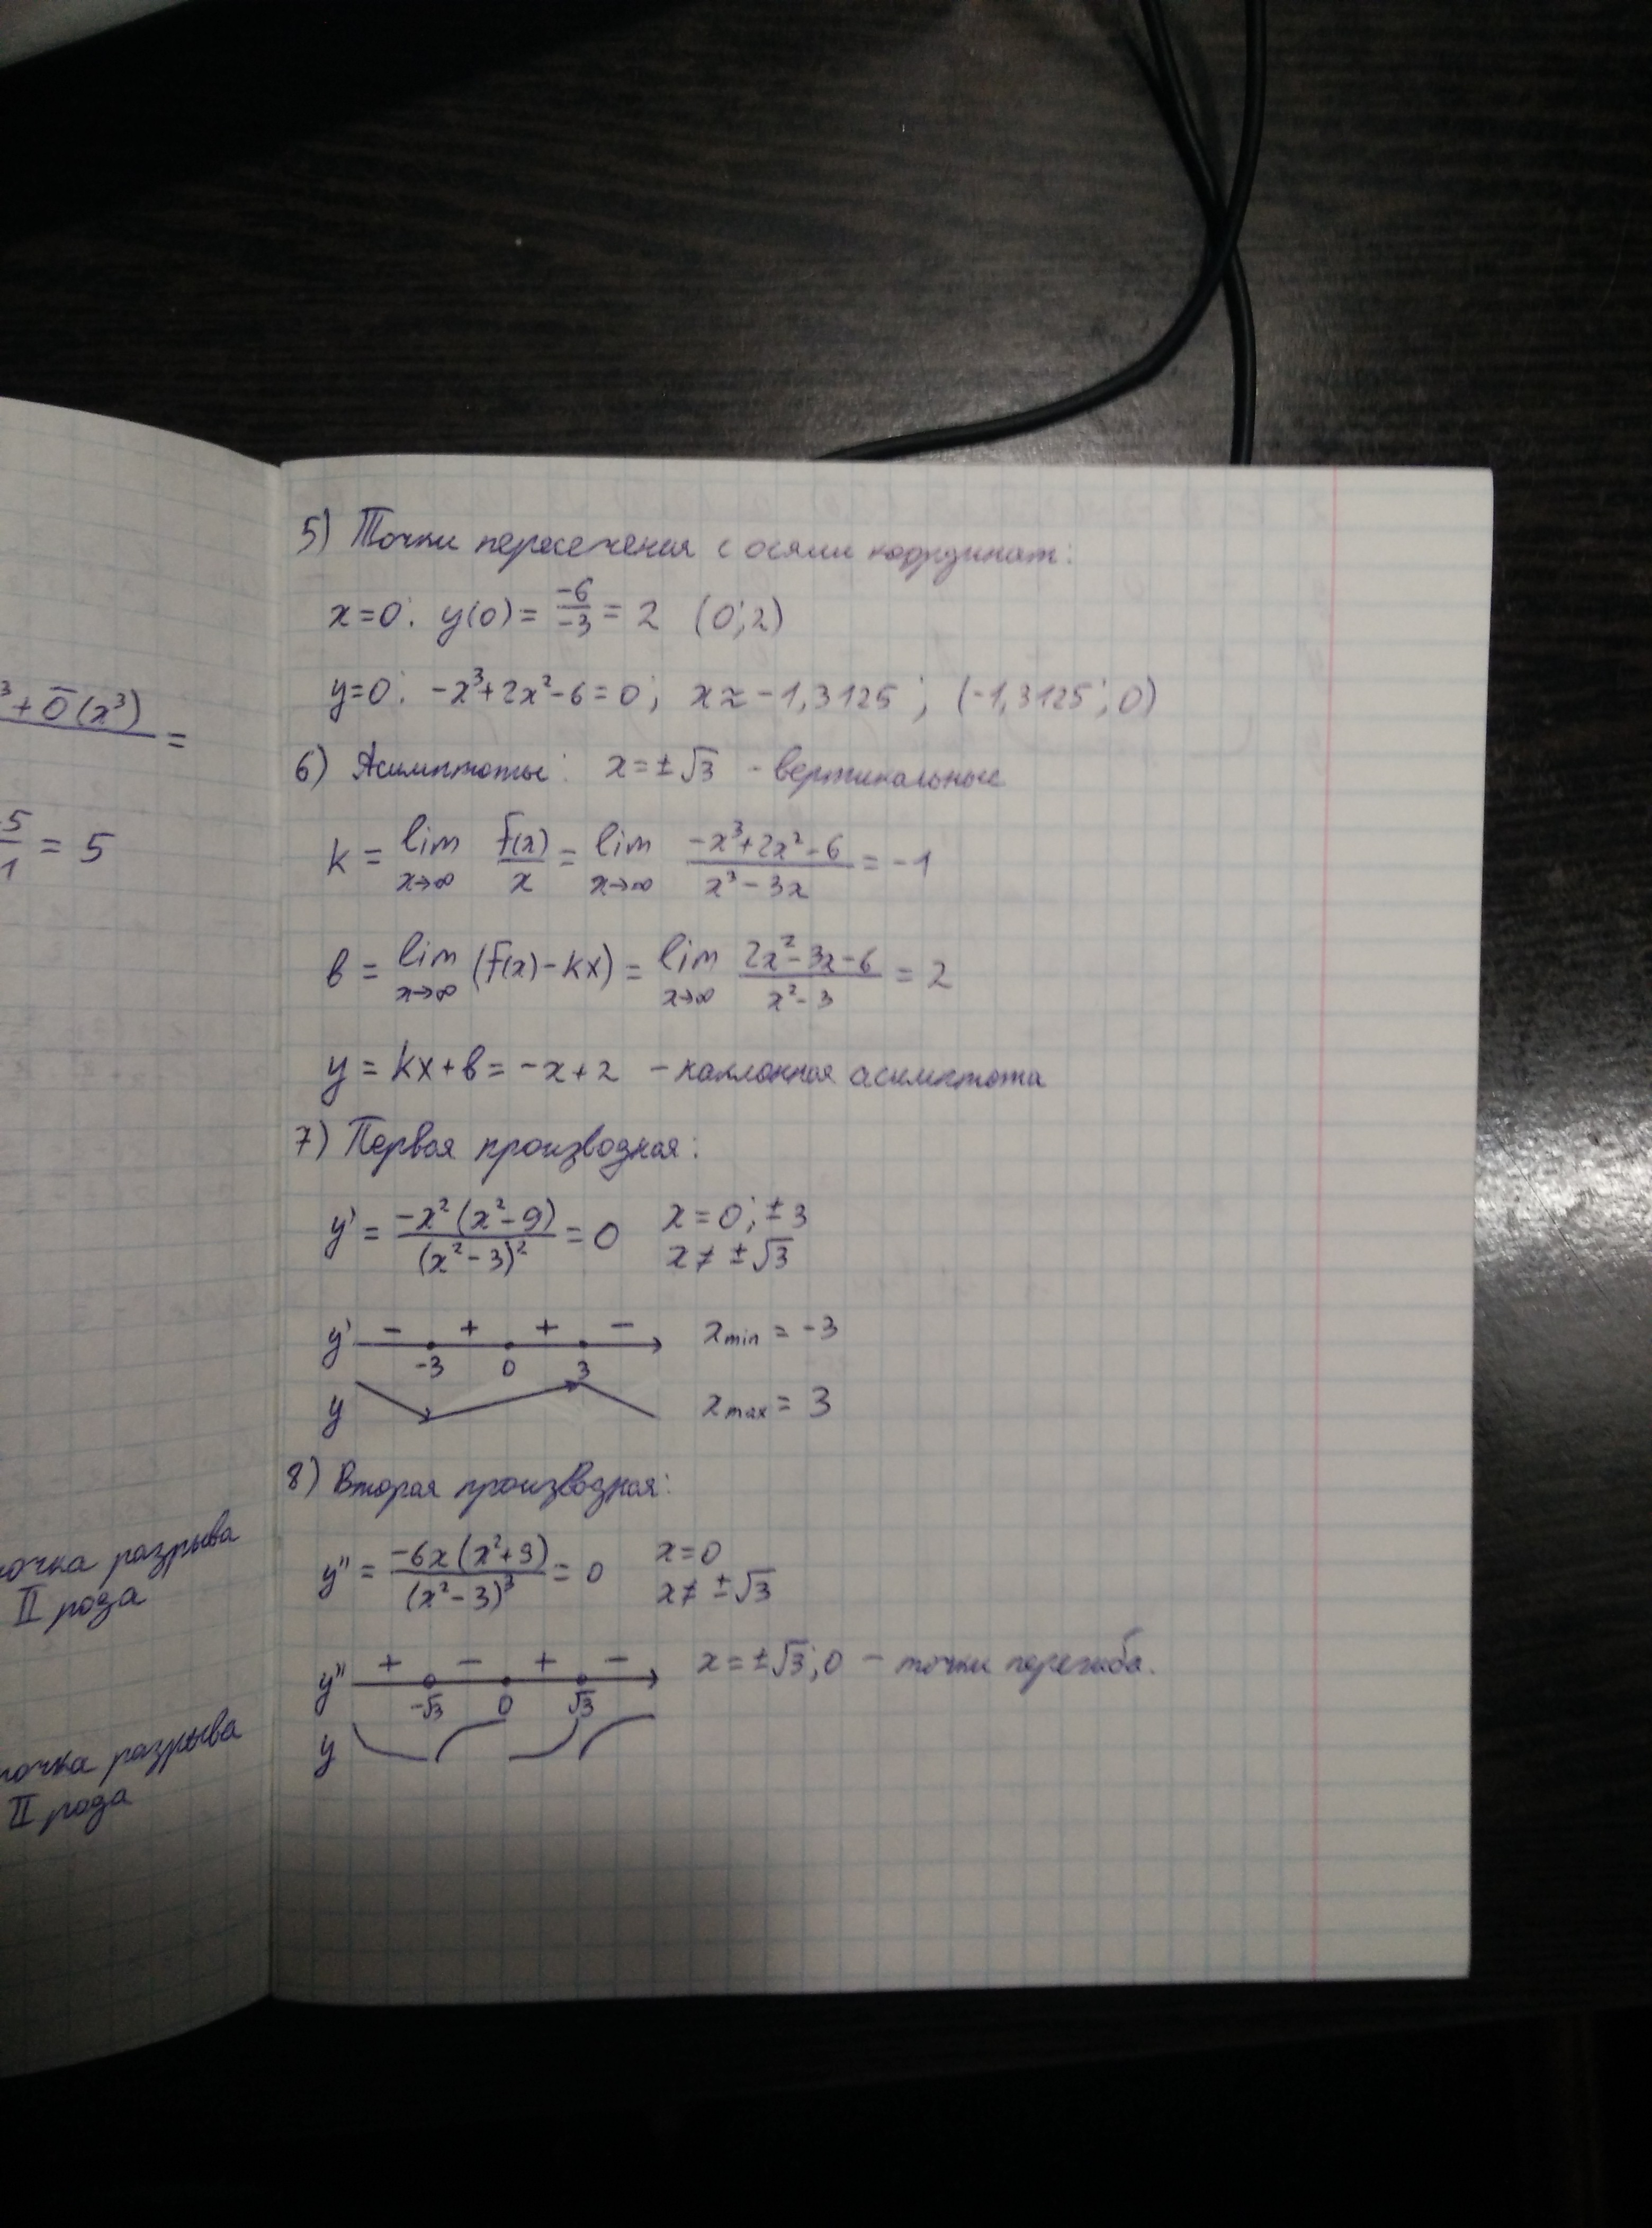 ³ + ō(x³) =
5/1 = 5
точка разрыва
II рода
точка разрыва
II рода
5) Точки пересечения с осями координат:
x=0: y(0) = -6/-3 = 2 (0;2)
y=0: -x³+2x²-6=0; x≈-1,3125; (-1,3125;0)
6) Асимптоты: x=±√3 - вертикальные
k = lim x→∞ f(x)/x = lim x→∞ (-x³+2x²-6)/(x³-3x) = -1
b = lim x→∞ (f(x)-kx) = lim x→∞ (2x²-3x-6)/(x²-3) = 2
y = kx+b = -x+2 - наклонная асимптота
7) Первая производная:
y' = -x²(x²-9)/(x²-3)² = 0 x=0; ±3
x≠±√3
y' - + + - xmin = -3
-3 0 3
y xmax = 3
8) Вторая производная:
y'' = -6x(x²+9)/(x²-3)³ = 0 x=0
x≠±√3
y'' + - + - x=±√3; 0 - точки перегиба.
-√3 0 √3
y